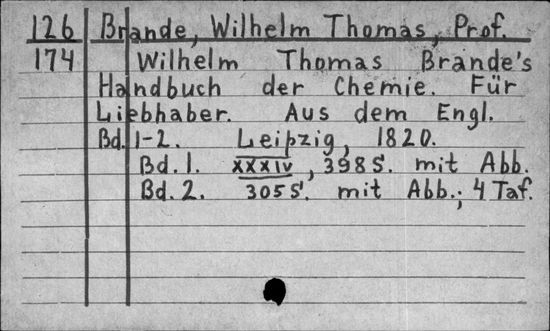 126 Brande, Wilhelm Thomas, Prof.
174 Wilhelm Thomas Brande's
Handbuch der Chemie. Für
Liebhaber. Aus dem Engl.
Bd. 1-2. Leipzig, 1820.
Bd. 1. XXXIV, 398 S. mit Abb.
Bd. 2. 305 S. mit Abb.; 4 Taf.